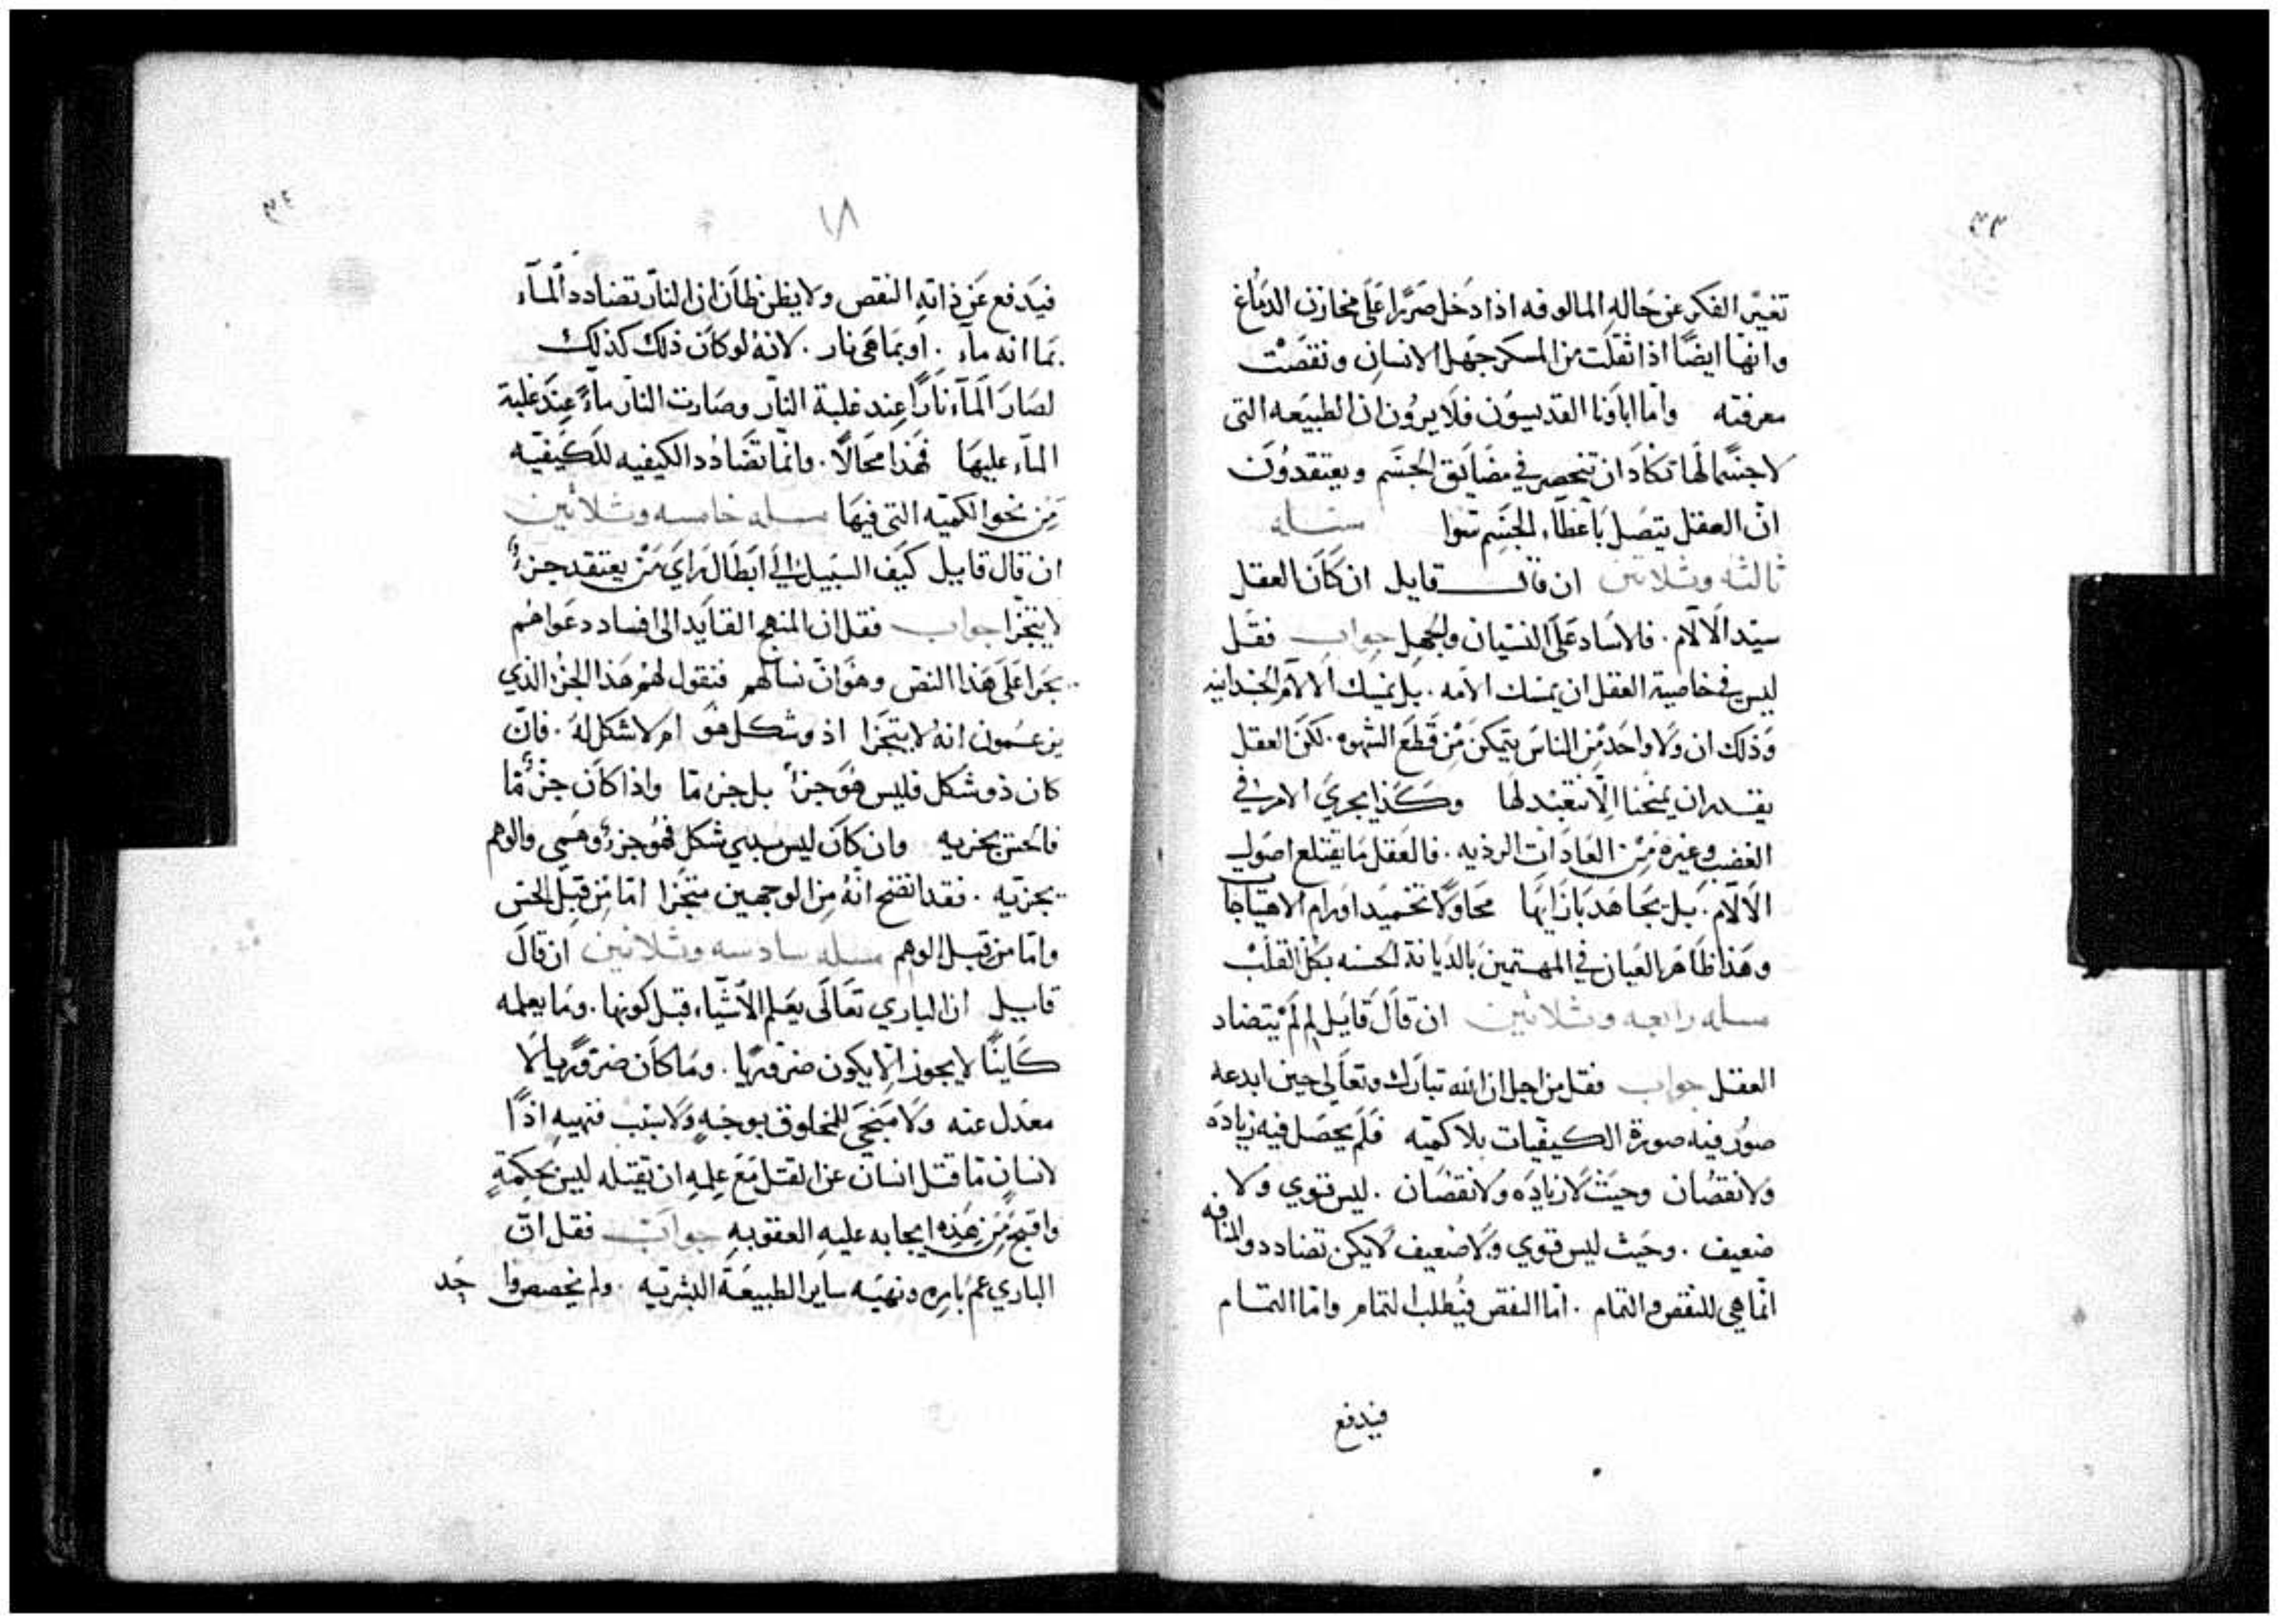 ٣٣
تغيّر الفكر عن حاله المالوفه اذا دخل ضررا على مخازن الدماغ
وانها ايضًا اذا ثقلت من المسكر جهل الانسان ونقصت
معرفته واما اباونا القديسون فلا يرون ان الطبيعه التى
لا جسم لها تكاد ان تنحصر في مضايق الجسم ويعتقدون
ان العقل يتصل باعضاء الجسم سوا مساله
ثالثه وثلاثين ان قال قايل ان كان العقل
سيد الالام. فلا ساد على النسيان والجهل جواب فقل
ليس في خاصية العقل ان يمسك الامه. بل يمسك الالام الجسدانيه
وذلك ان ولا واحد من الناس يتمكن من قطع الشهوه. لكن العقل
يقدر ان يمنحنا الا نتعبد لها وكذا يجري الامر في
الغضب وغيره من العادات الرذيه. فالعقل ما يقتلع اصول
الالام. بل يجاهد بازايها محاولًا تخميد اورام الاهتياجا
وهذا ظاهر العيان في المهتمين بالديانة الحسنه بكل القلب
مساله رابعه وثلاثين ان قال قايل لم لم يتضاد
العقل جواب فقل من اجل ان الله تبارك وتعالى حين ابدعه
صور فيه صورة الكيفيات بلا كميه فلم يحصل فيه زياده
ولا نقصان وحيث لا زياده ولا نقصان. ليس قوي ولا
ضعيف. وحيث ليس قوي ولا ضعيف لا يكن تضادد والمنافه
انما هي للنقص والتمام. اما النقص فيُطلب التمام واما التمام
فيدفع
٣٤
١٨
فيدفع عن ذاته النقص ولا يظن ظان ان النار تضادد الماء
بما انه ماء. او بما هى نار. لانه لو كان ذلك كذلك
لصار الماء نارًا عند غلبة النار وصارت النار ماءً عند غلبة
الماء عليها فهذا محالًا. وانما تضادد الكيفيه للكيفيه
من نحو الكميه التى فيها مساله خامسه وثلاثين
ان قال قاييل كيف السبيل الى ابطال راي من يعتقد جزءٌ
لا يتجزا جواب فقل ان المنهج القايد الى افساد دعواهم
يجرا على هذا النص وهو ان نسالهم فنقول لهم هذا الجزء الذي
يزعمون انه لا يتجزا اذو شكل هو ام لا شكل له. فان
كان ذو شكل فليس هو جزءً بل جزء ما واذا كان جزءٌ ما
فالحس يجزيه وان كان ليس بذي شكل فهو جزءٌ وهمي والوهم
يجزيه. فقد اتضح انه من الوجهين متجزا اما من قبل الحس
واما من قبل الوهم مساله سادسه وثلاثين ان قال
قاييل ان الباري تعالى يعلم الاشياء قبل كونها. وما يعلمه
كاينًا لا يجوز الا يكون ضروريا. وما كان ضروريا لا
معدل عنه ولا منجى للمخلوق بوجه ولا بسبب فنهيه اذًا
لانسان ما قتل انسان عن القتل مع علمه ان يقتله ليس بحكمةٍ
واقبح من هذه ايجابه عليه العقوبه جواب فقل ان
الباري عم بامره ونهيه ساير الطبيعة البشريه. ولم يخصصوا حد